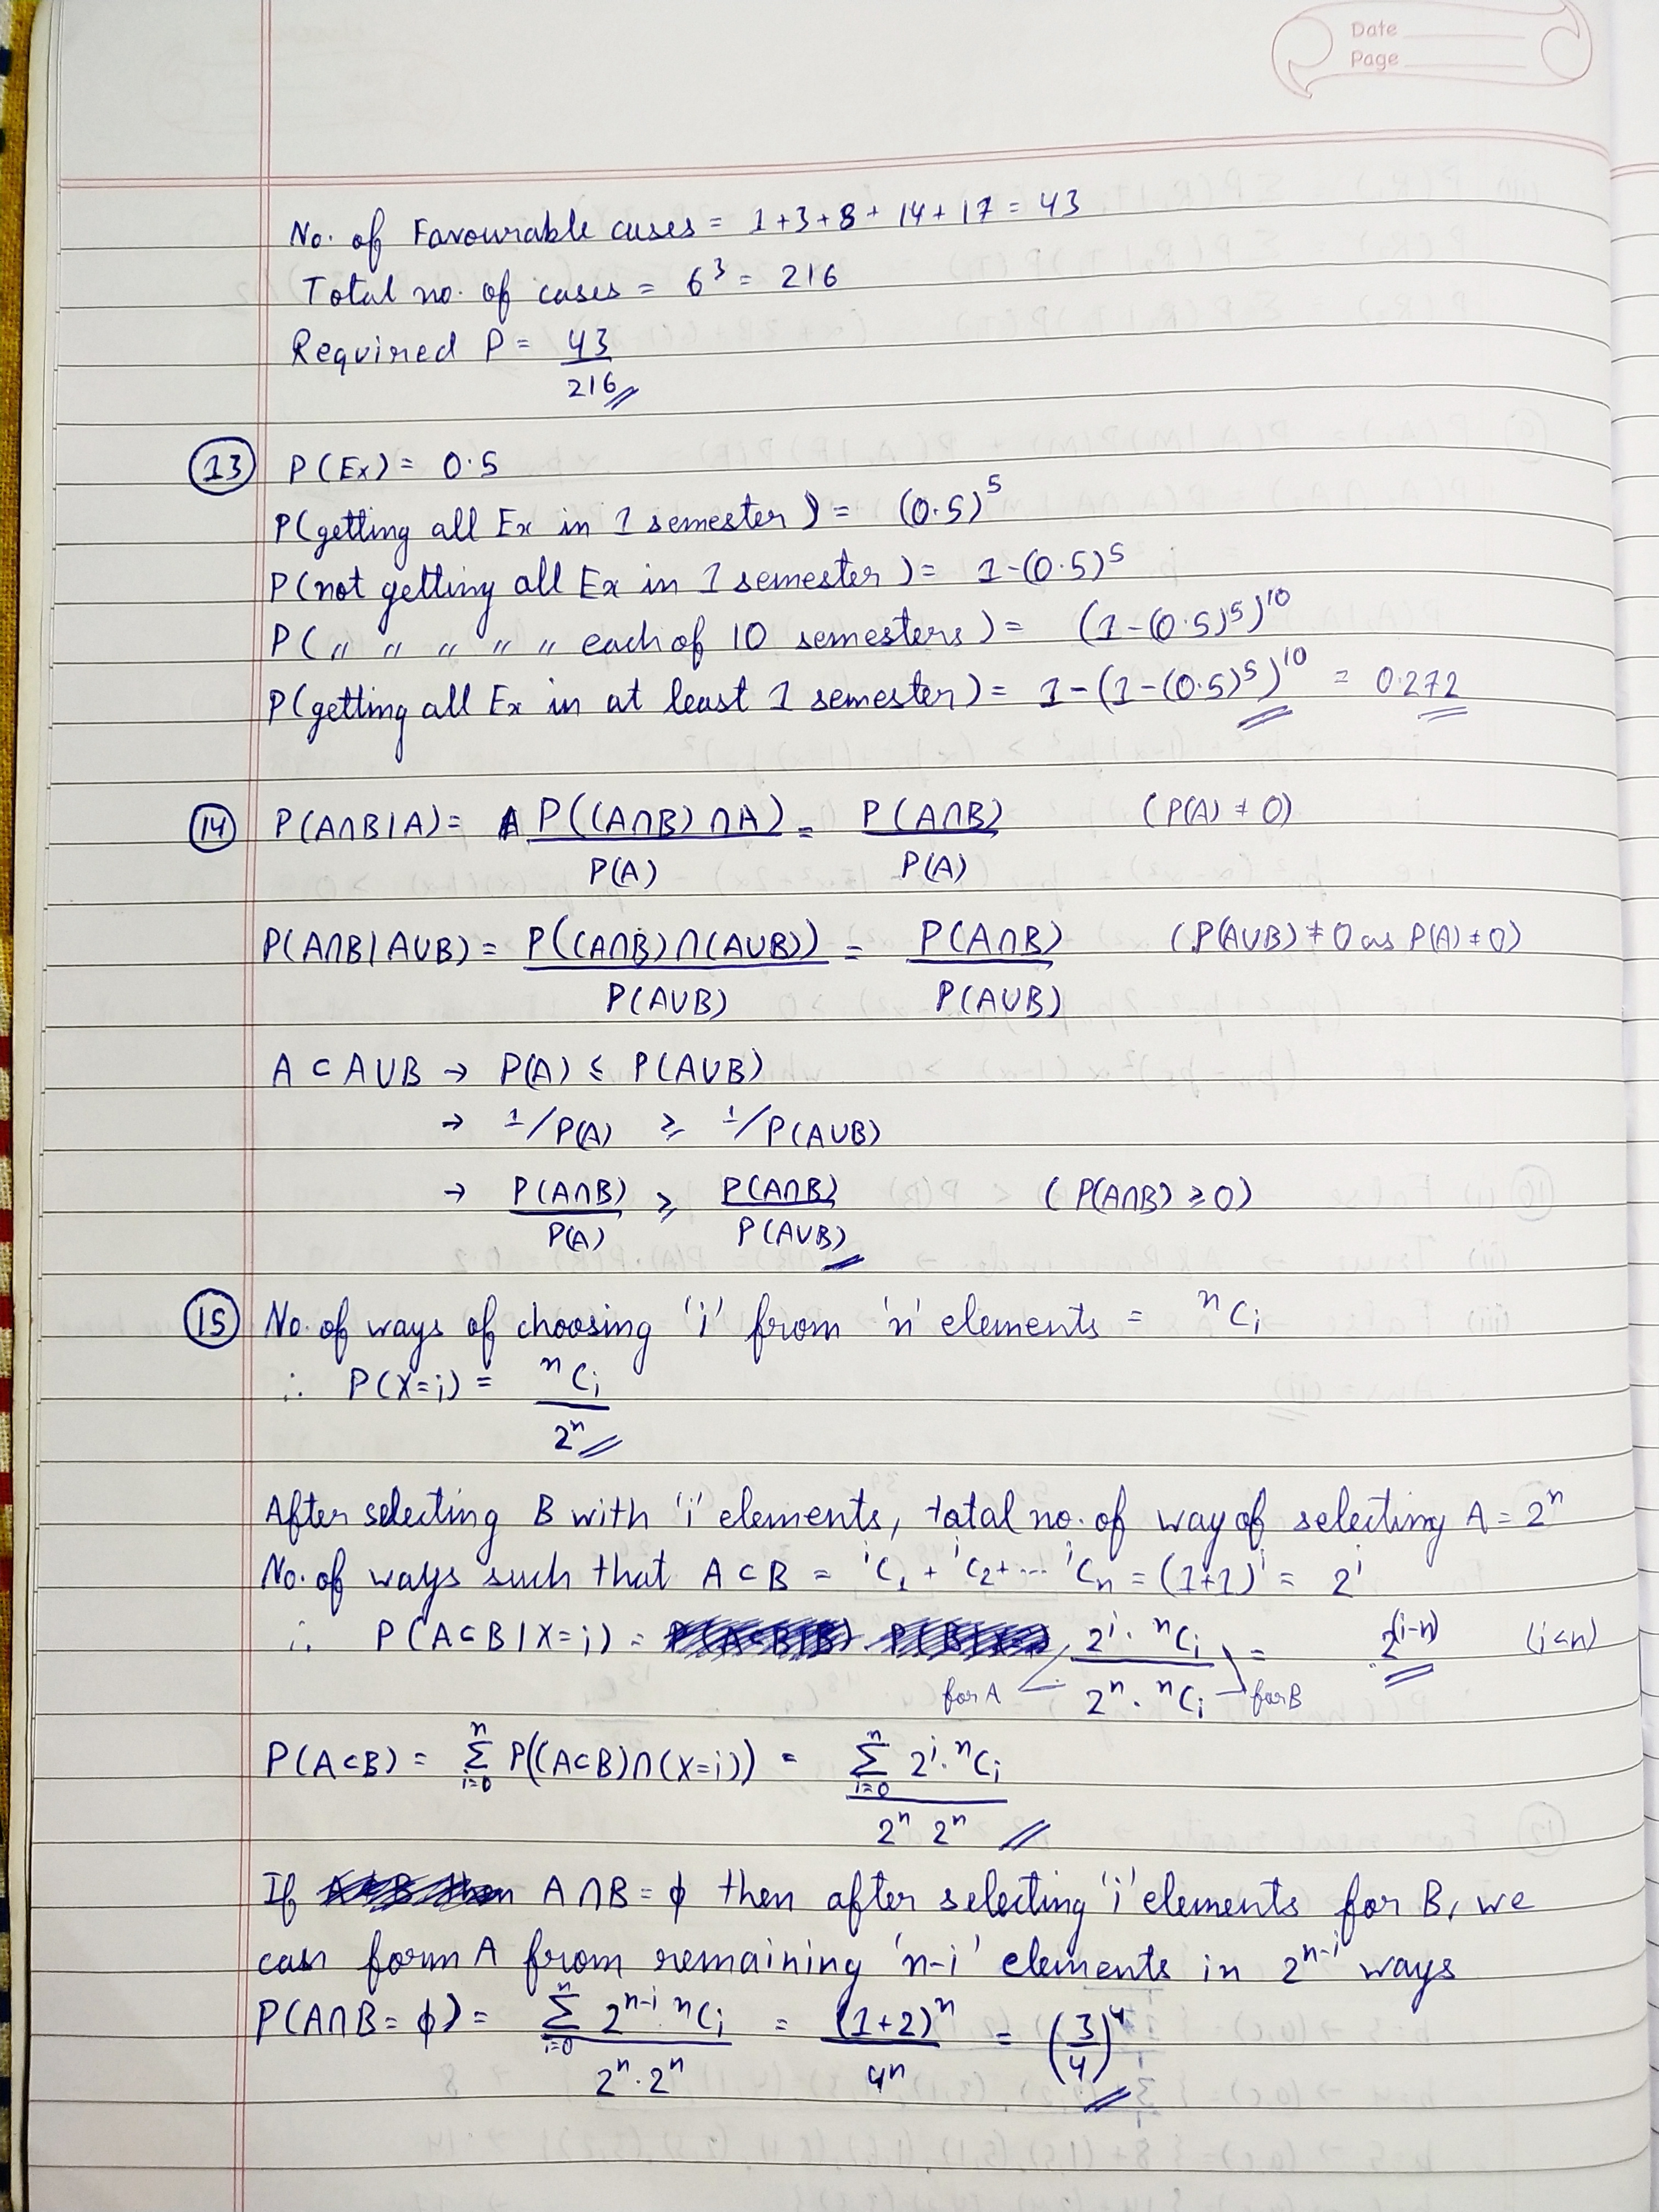 Date
Page
No. of Favourable cases = 1+3+8+14+17 = 43
Total no. of cases = 6³ = 216
Required P = 43/216
(13) P(Ex) = 0.5
P(getting all Ex in 1 semester) = (0.5)⁵
P(not getting all Ex in 1 semester) = 1-(0.5)⁵
P( " " " " " each of 10 semesters) = (1-(0.5)⁵)¹⁰
P(getting all Ex in at least 1 semester) = 1-(1-(0.5)⁵)¹⁰ = 0.272
(14) P(A∩B|A) = P((A∩B)∩A)/P(A) = P(A∩B)/P(A) (P(A) ≠ 0)
P(A∩B|A∪B) = P((A∩B)∩(A∪B))/P(A∪B) = P(A∩B)/P(A∪B) (P(A∪B) ≠ 0 as P(A) ≠ 0)
A ⊂ A∪B → P(A) ≤ P(A∪B)
→ 1/P(A) ≥ 1/P(A∪B)
→ P(A∩B)/P(A) ≥ P(A∩B)/P(A∪B) (P(A∩B) ≥ 0)
(15) No. of ways of choosing 'i' from 'n' elements = ⁿCᵢ
∴ P(X=i) = ⁿCᵢ/2ⁿ
After selecting B with 'i' elements, total no. of way of selecting A = 2ⁿ
No. of ways such that A⊂B = ⁱC₁ + ⁱC₂ + ... ⁱCₙ = (1+1)ⁱ = 2ⁱ
∴ P(A⊂B|X=i) = 2ⁱ · ⁿCᵢ / 2ⁿ · ⁿCᵢ = 2^(i-n) (i<n)
for A for B
P(A⊂B) = Σ(i=0 to n) P((A⊂B)∩(X=i)) = Σ(i=0 to n) 2ⁱ · ⁿCᵢ / 2ⁿ 2ⁿ
If A∩B = ϕ then after selecting 'i' elements for B, we
can form A from remaining 'n-i' elements in 2ⁿ⁻ⁱ ways
P(A∩B = ϕ) = Σ(i=0 to n) 2ⁿ⁻ⁱ ⁿCᵢ / 2ⁿ · 2ⁿ = (1+2)ⁿ/4ⁿ = (3/4)⁴